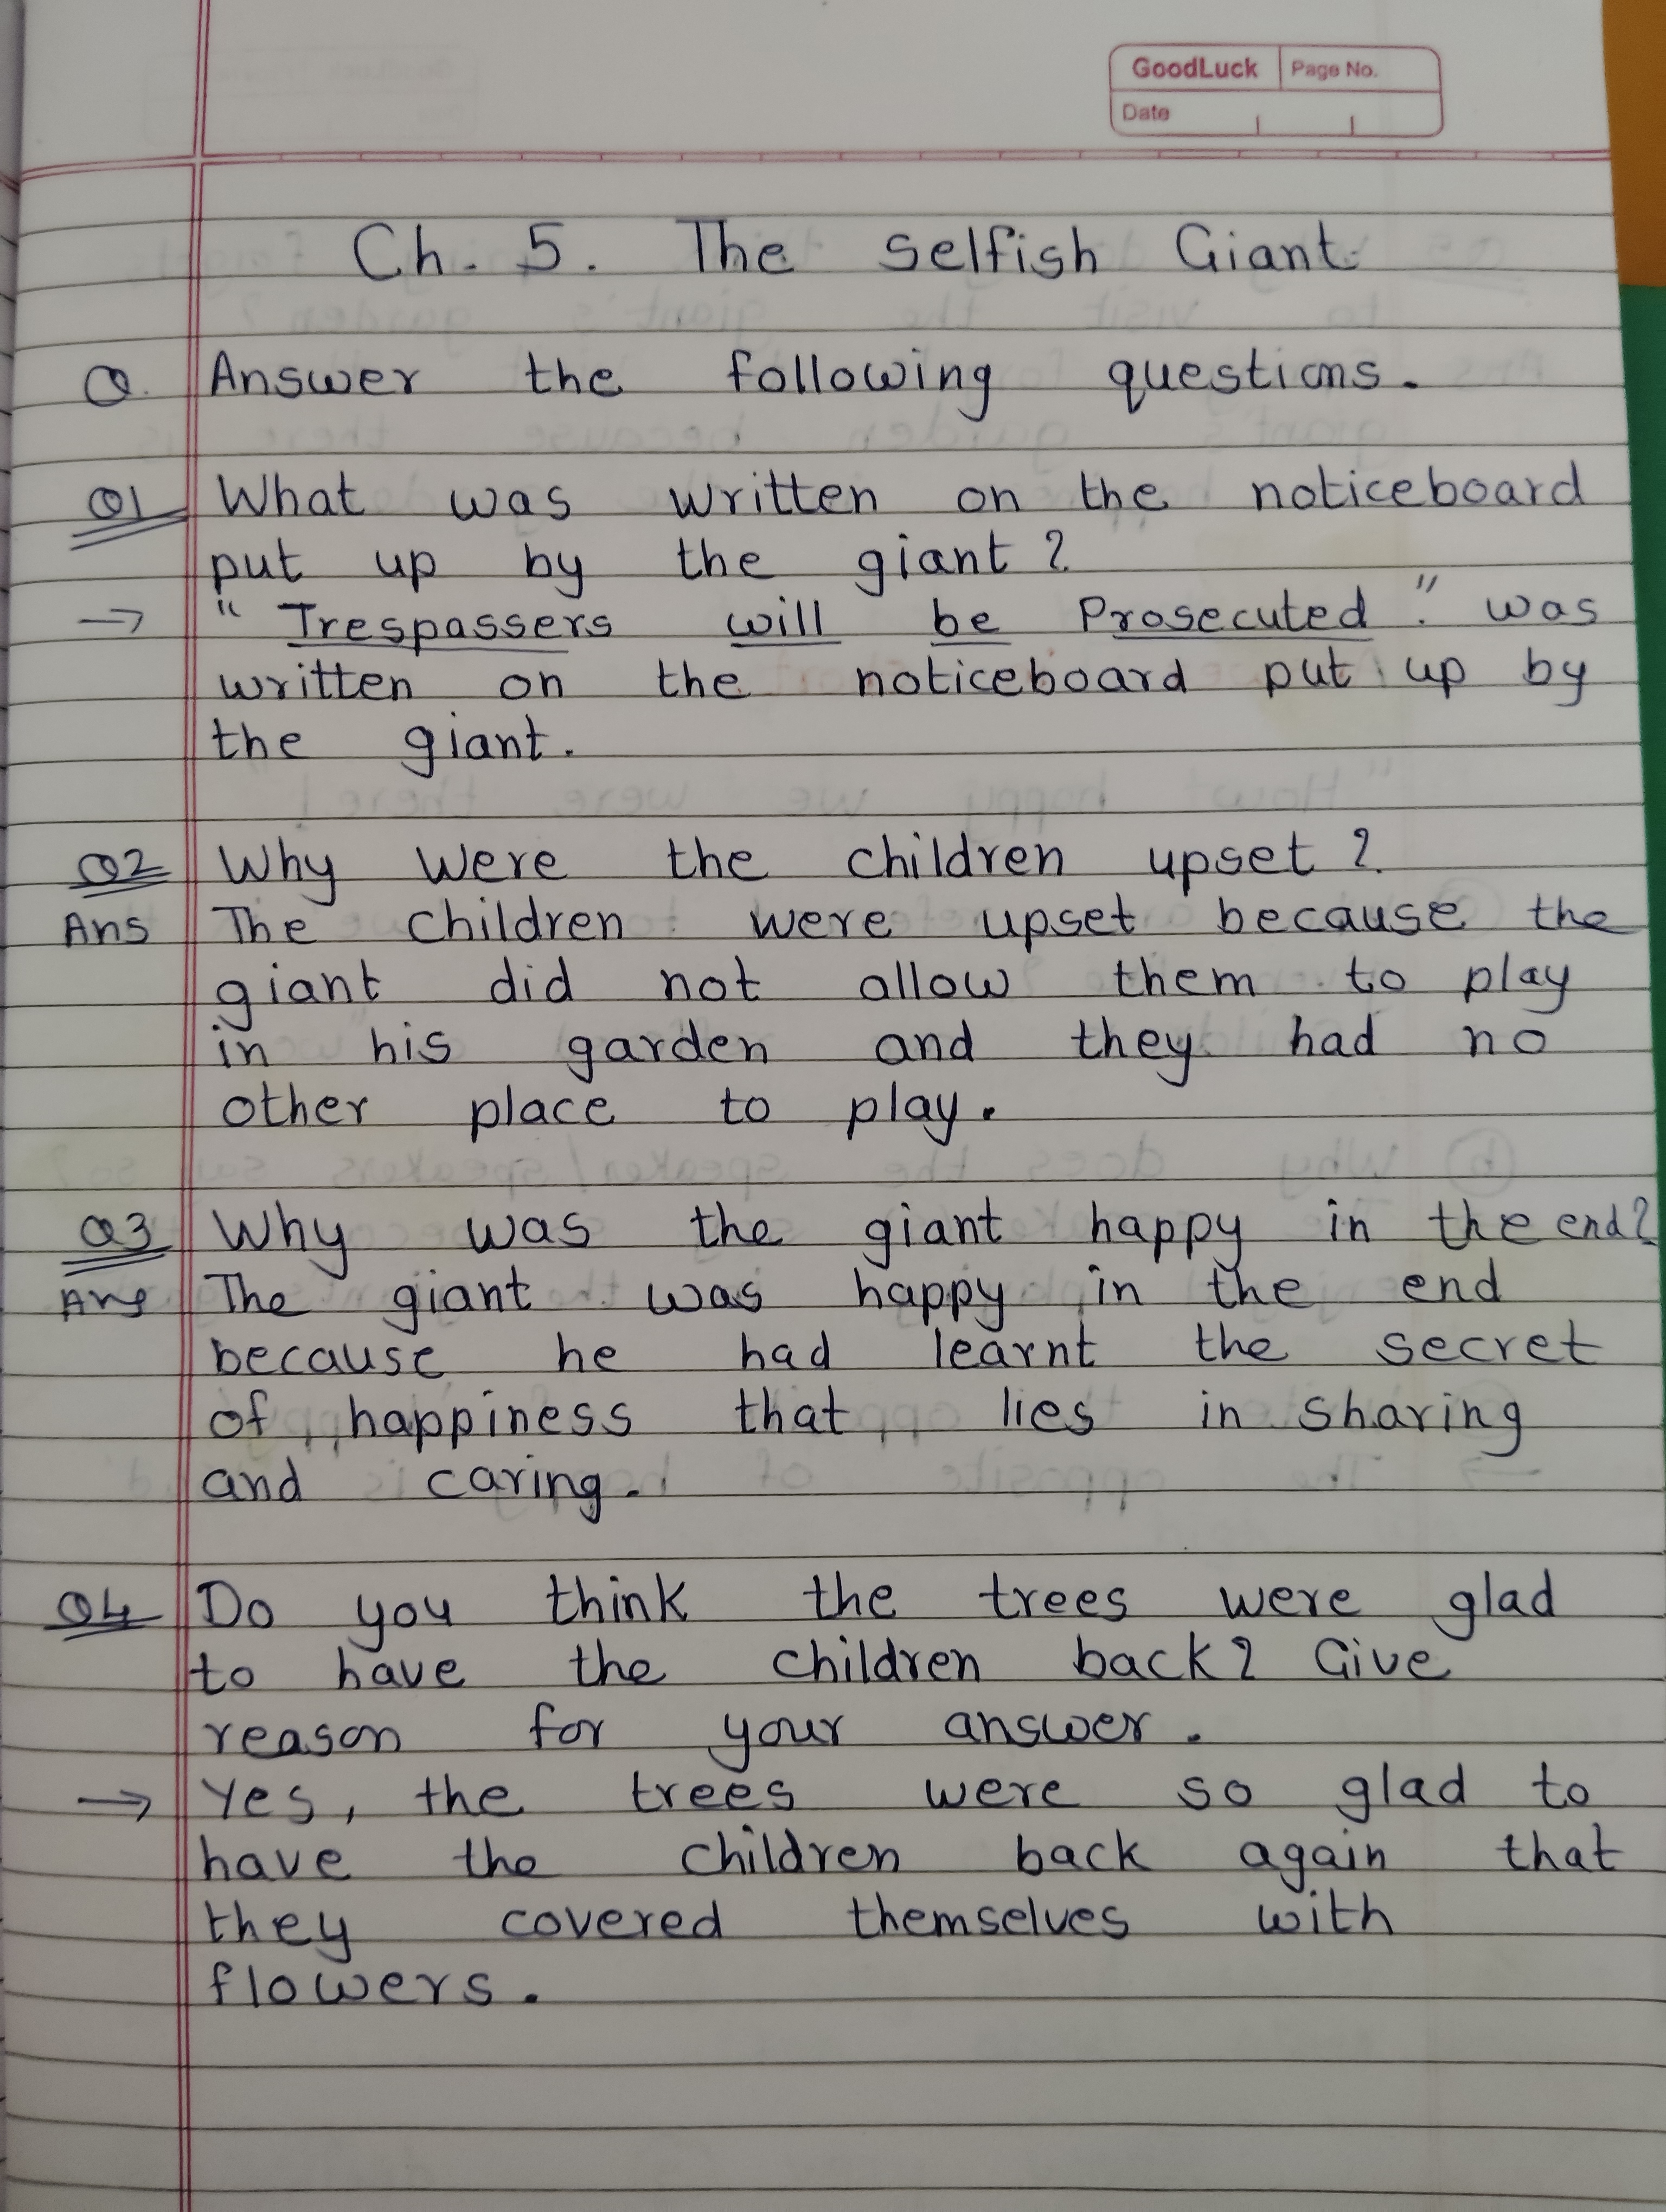 GoodLuck Page No.
Date
Ch. 5. The Selfish Giant
Q. Answer the following questions.
Q1 What was written on the noticeboard
put up by the giant?
→ "Trespassers will be Prosecuted." was
written on the noticeboard put up by
the giant.
Q2 Why were the children upset?
Ans The children were upset because the
giant did not allow them to play
in his garden and they had no
other place to play.
Q3 Why was the giant happy in the end?
Ans The giant was happy in the end
because he had learnt the secret
of happiness that lies in sharing
and caring.
Q4 Do you think the trees were glad
to have the children back? Give
reason for your answer.
→ Yes, the trees were so glad to
have the children back again that
they covered themselves with
flowers.